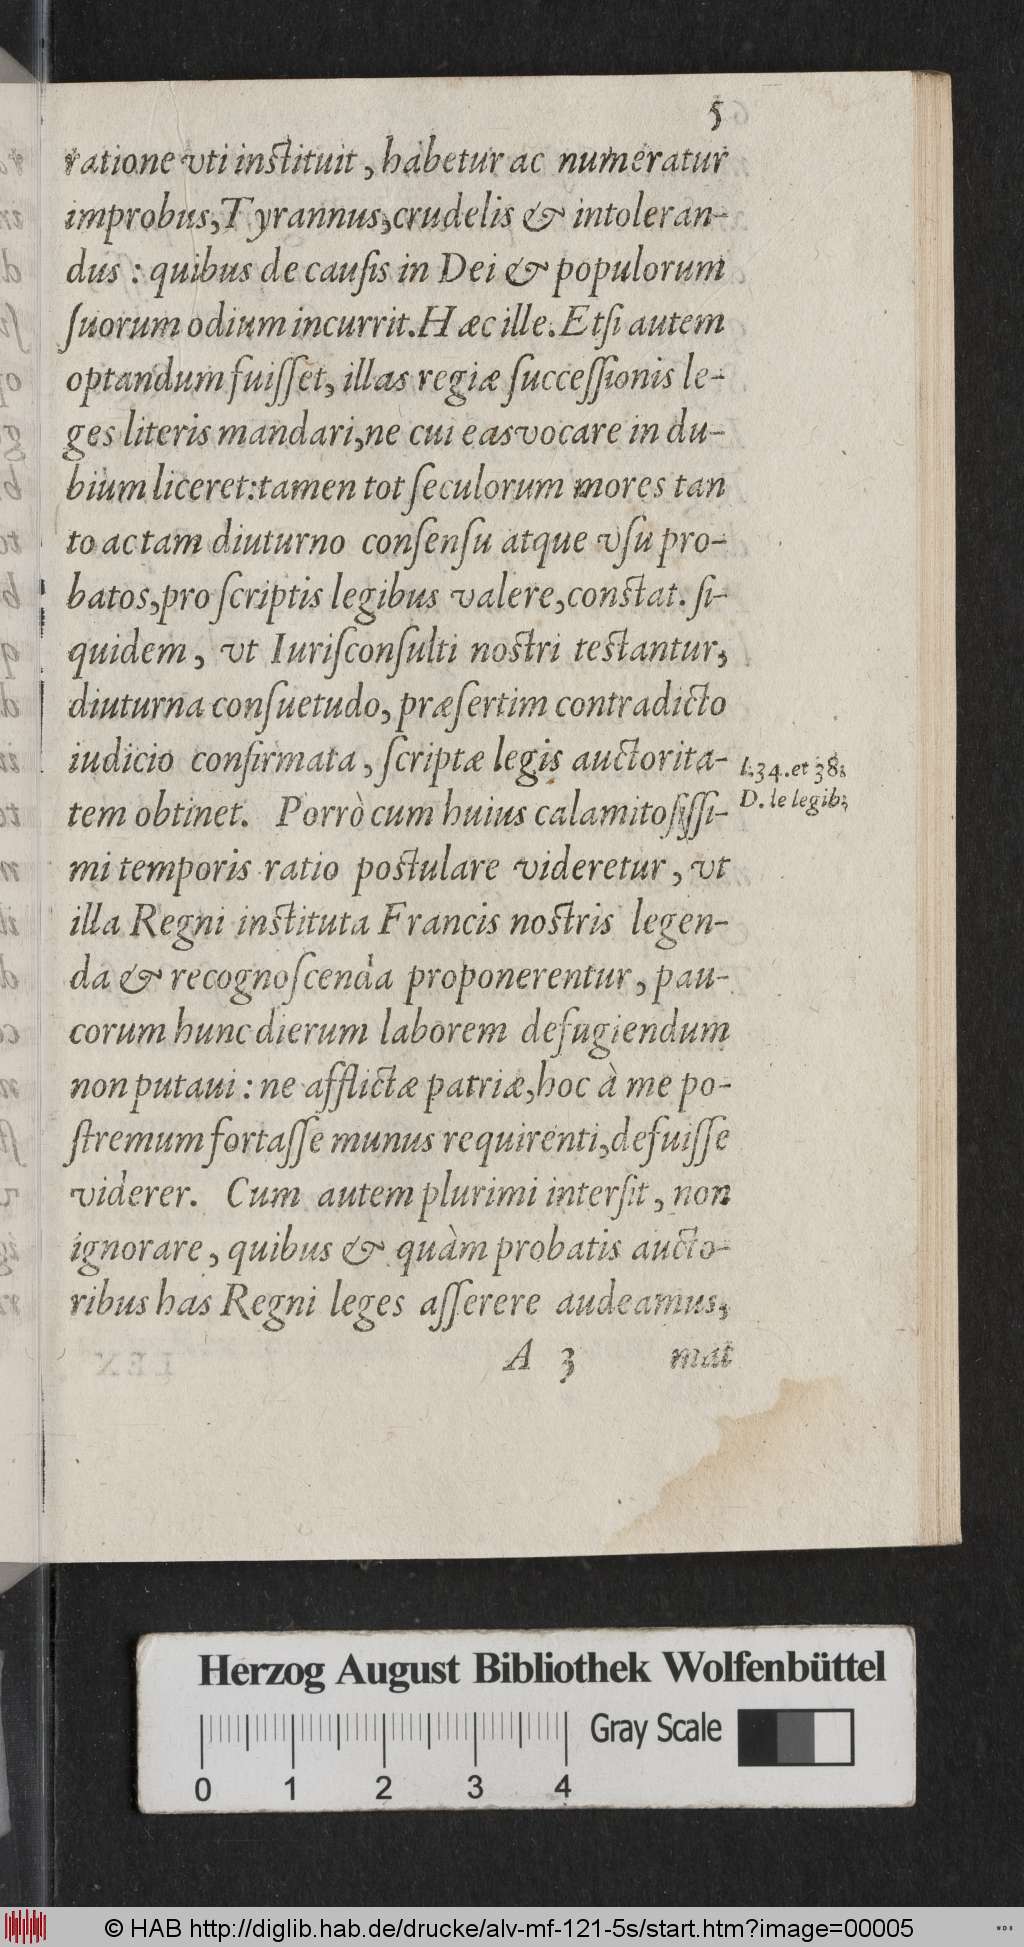 5
ratione vti inſtituit, habetur ac numeratur
improbus, Tyrannus, crudelis & intoleran-
dus: quibus de cauſis in Dei & populorum
ſuorum odium incurrit. Hæc ille. Etſi autem
optandum fuiſſet, illas regiæ ſucceſſionis le-
ges literis mandari, ne cui eas vocare in du-
bium liceret: tamen tot ſeculorum mores tan
to ac tam diuturno conſenſu atque vſu pro-
batos, pro ſcriptis legibus valere, conſtat. ſi-
quidem, vt Iuriſconſulti noſtri teſtantur,
diuturna conſuetudo, præſertim contradicto
iudicio confirmata, ſcriptæ legis auctorita-
l. 34. et 38.
tem obtinet. Porrò cum huius calamitoſiſſi-
D. le legib.
mi temporis ratio poſtulare videretur, vt
illa Regni inſtituta Francis noſtris legen-
da & recognoſcenda proponerentur, pau-
corum hunc dierum laborem defugiendum
non putaui: ne afflictæ patriæ, hoc à me po-
ſtremum fortaſſe munus requirenti, defuiſſe
viderer. Cum autem plurimi interſit, non
ignorare, quibus & quàm probatis aucto-
ribus has Regni leges aſſerere audeamus,
A 3 mat
Herzog August Bibliothek Wolfenbüttel
Gray Scale
0 1 2 3 4
© HAB http://diglib.hab.de/drucke/alv-mf-121-5s/start.htm?image=00005